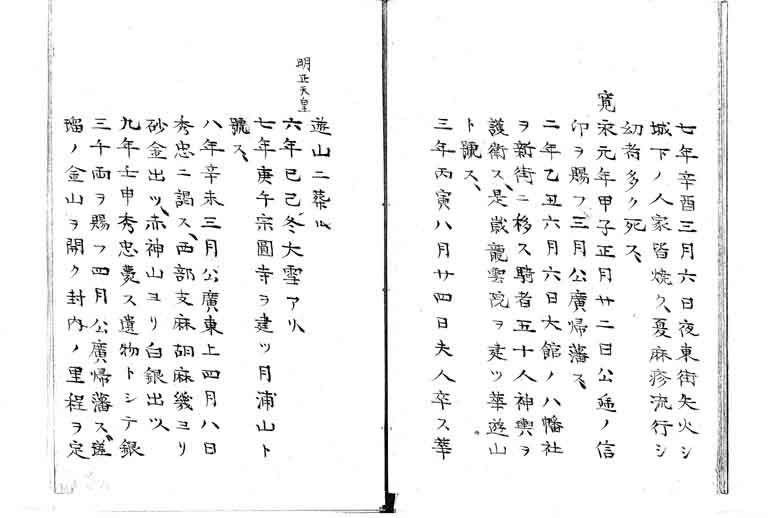 七年辛酉三月六日夜東街失火シ
城下ノ人家皆焼ク、夏麻疹流行シ
幼者多ク死ス、
寛永元年甲子正月廿二日公逓ノ信
印ヲ賜フ三月公廣帰藩ス、
二年乙丑六月六日大館ノ八幡社
ヲ新街ニ移ス騎者五十人神輿ヲ
護衛ス、是歳龍雲院ヲ建ツ華遊山
ト號ス、
三年丙寅八月廿四日夫人卒ス華
遊山ニ葬ル
明正天皇
六年己巳冬大雪アリ、
七年庚午宗圓寺ヲ建ツ月浦山ト
號ス、
八年辛未三月公廣東上四月八日
秀忠ニ謁ス、西部支麻胡麻幾ヨリ
砂金出ツ、赤神山ヨリ白銀出ツ、
九年壬申秀忠薨ス遺物トシテ銀
三千両ヲ賜フ四月公廣帰藩ス、
ノ金山ヲ開ク封内ノ里程ヲ定